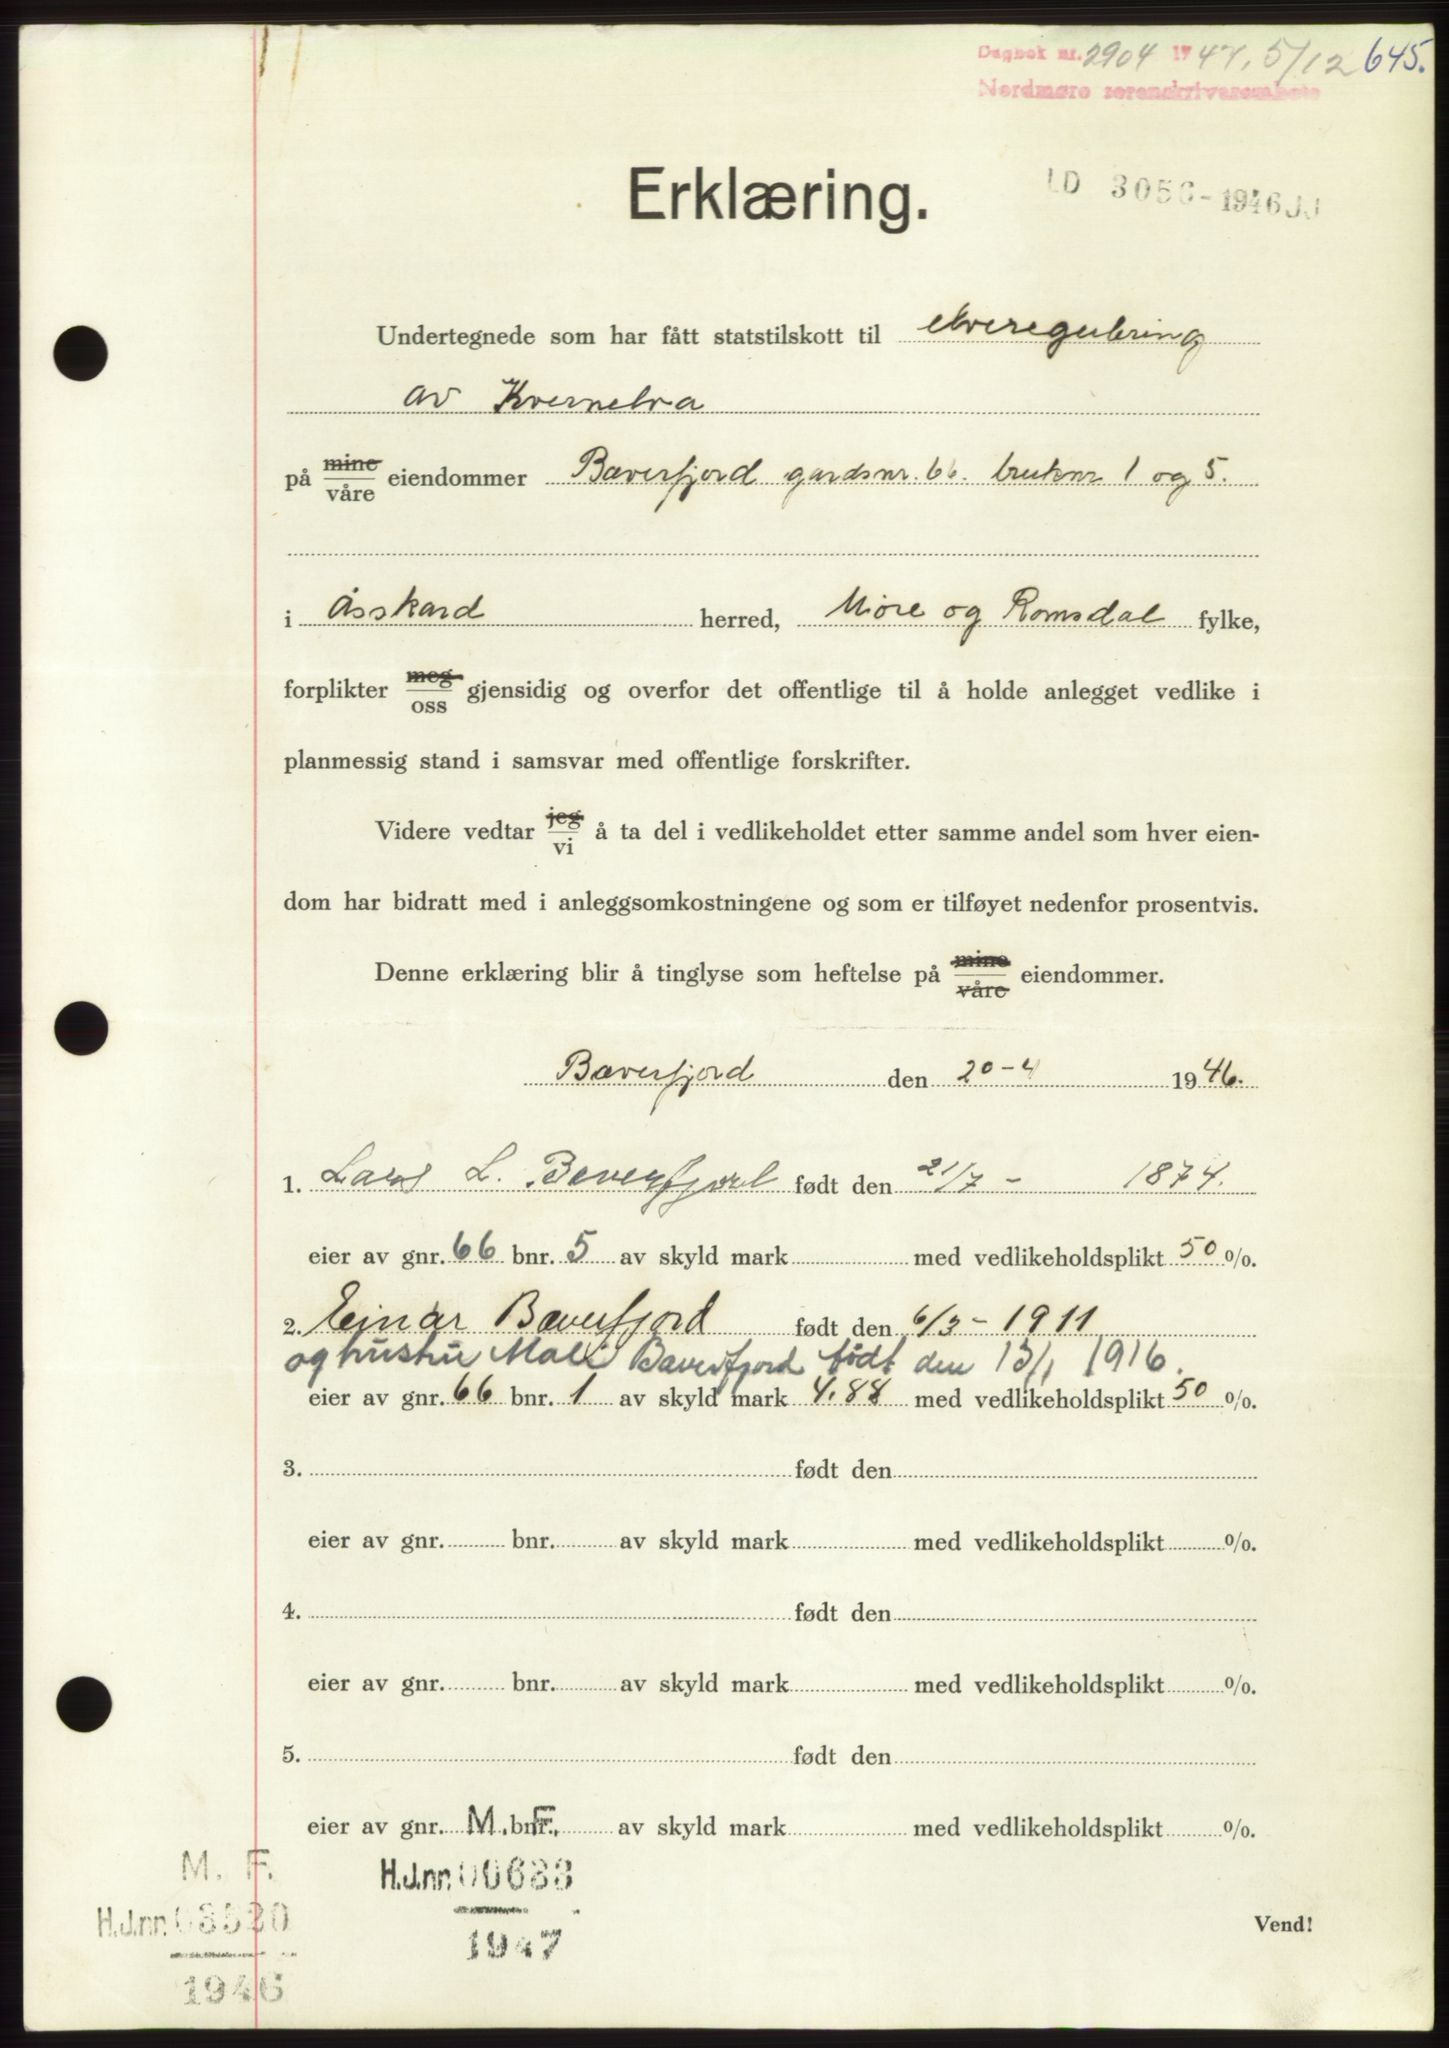 Dagbok nr. 2904 1947, 5/12 645.
Nordmøre sorenskriverembete
Erklæring.
LD 3056-1946 JJ
Undertegnede som har fått statstilskott til elveregulering
av Kvernelva
på mine/våre eiendommer Bæverfjord gardsnr. 66. bruksnr 1 og 5.
i Åsskard herred, Møre og Romsdal fylke,
forplikter meg/oss gjensidig og overfor det offentlige til å holde anlegget vedlike i
planmessig stand i samsvar med offentlige forskrifter.
Videre vedtar jeg/vi å ta del i vedlikeholdet etter samme andel som hver eien-
dom har bidratt med i anleggsomkostningene og som er tilføyet nedenfor prosentvis.
Denne erklæring blir å tinglyse som heftelse på mine/våre eiendommer.
Bæverfjord den 20-4 1946.
1. Lars L. Bæverfjord født den 21/7 - 1874.
eier av gnr. 66 bnr. 5 av skyld mark med vedlikeholdsplikt 50 %.
2. Einar Bæverfjord født den 6/3 - 1911
og hustru Mali Bæverfjord født den 13/1 1916.
eier av gnr. 66 bnr. 1 av skyld mark 4.88 med vedlikeholdsplikt 50 %.
3. født den
eier av gnr. bnr. av skyld mark med vedlikeholdsplikt %.
4. født den
eier av gnr. bnr. av skyld mark med vedlikeholdsplikt %.
5. født den
eier av gnr. bnr. av skyld mark med vedlikeholdsplikt %.
M. F.
H.J.nr. 00633
1947
M. F.
H.J.nr. 03520
1946
Vend!